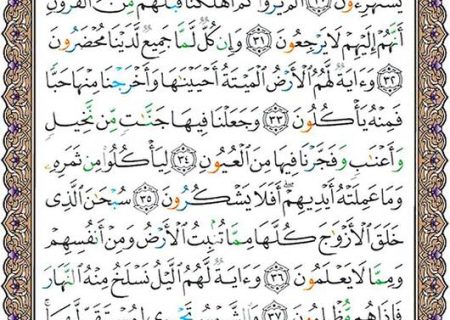 يَسْتَهْزِءُونَ ٣٠ أَلَمْ يَرَوْا۟ كَمْ أَهْلَكْنَا قَبْلَهُم مِّنَ ٱلْقُرُونِ
أَنَّهُمْ إِلَيْهِمْ لَا يَرْجِعُونَ ٣١ وَإِن كُلٌّ لَّمَّا جَمِيعٌ لَّدَيْنَا مُحْضَرُونَ
٣٢ وَءَايَةٌ لَّهُمُ ٱلْأَرْضُ ٱلْمَيْتَةُ أَحْيَيْنَٰهَا وَأَخْرَجْنَا مِنْهَا حَبًّا
فَمِنْهُ يَأْكُلُونَ ٣٣ وَجَعَلْنَا فِيهَا جَنَّٰتٍ مِّن نَّخِيلٍ
وَأَعْنَٰبٍ وَفَجَّرْنَا فِيهَا مِنَ ٱلْعُيُونِ ٣٤ لِيَأْكُلُوا۟ مِن ثَمَرِهِۦ
وَمَا عَمِلَتْهُ أَيْدِيهِمْ ۖ أَفَلَا يَشْكُرُونَ ٣٥ سُبْحَٰنَ ٱلَّذِى
خَلَقَ ٱلْأَزْوَٰجَ كُلَّهَا مِمَّا تُنۢبِتُ ٱلْأَرْضُ وَمِنْ أَنفُسِهِمْ
وَمِمَّا لَا يَعْلَمُونَ ٣٦ وَءَايَةٌ لَّهُمُ ٱلَّيْلُ نَسْلَخُ مِنْهُ ٱلنَّهَارَ
فَإِذَا هُم مُّظْلِمُونَ ٣٧ وَٱلشَّمْسُ تَجْرِى لِمُسْتَقَرٍّ لَّهَا